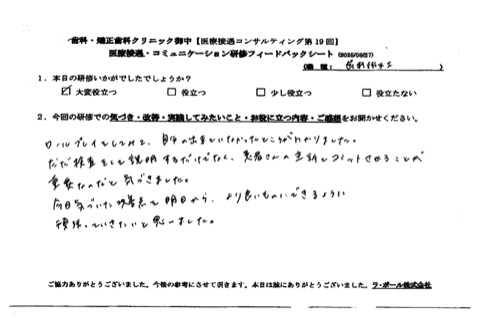 歯科・矯正歯科クリニック御中【医療接遇コンサルティング第19回】
医療接遇・コミュニケーション研修フィードバックシート (2025/08/27)
(職 種: 歯科衛生士 )
1．本日の研修いかがでしたでしょうか？
☑ 大変役立つ □ 役立つ □ 少し役立つ □ 役立たない
2．今回の研修での気づき・改善・実践してみたいこと・お役に立つ内容・ご感想をお聞かせください。
ロールプレイをしてみて、自分の出来ていなかったところがわかりました。
ただ検査をして説明するだけでなく、患者さんの主訴とコミットさせることが
重要なのだと気づきました。
今日気づいた改善点を明日から、より良いものにできるように
頑張っていきたいと思いました。
ご協力ありがとうございました。今後の参考にさせて頂きます。本日は誠にありがとうございました。ラ・ポール株式会社